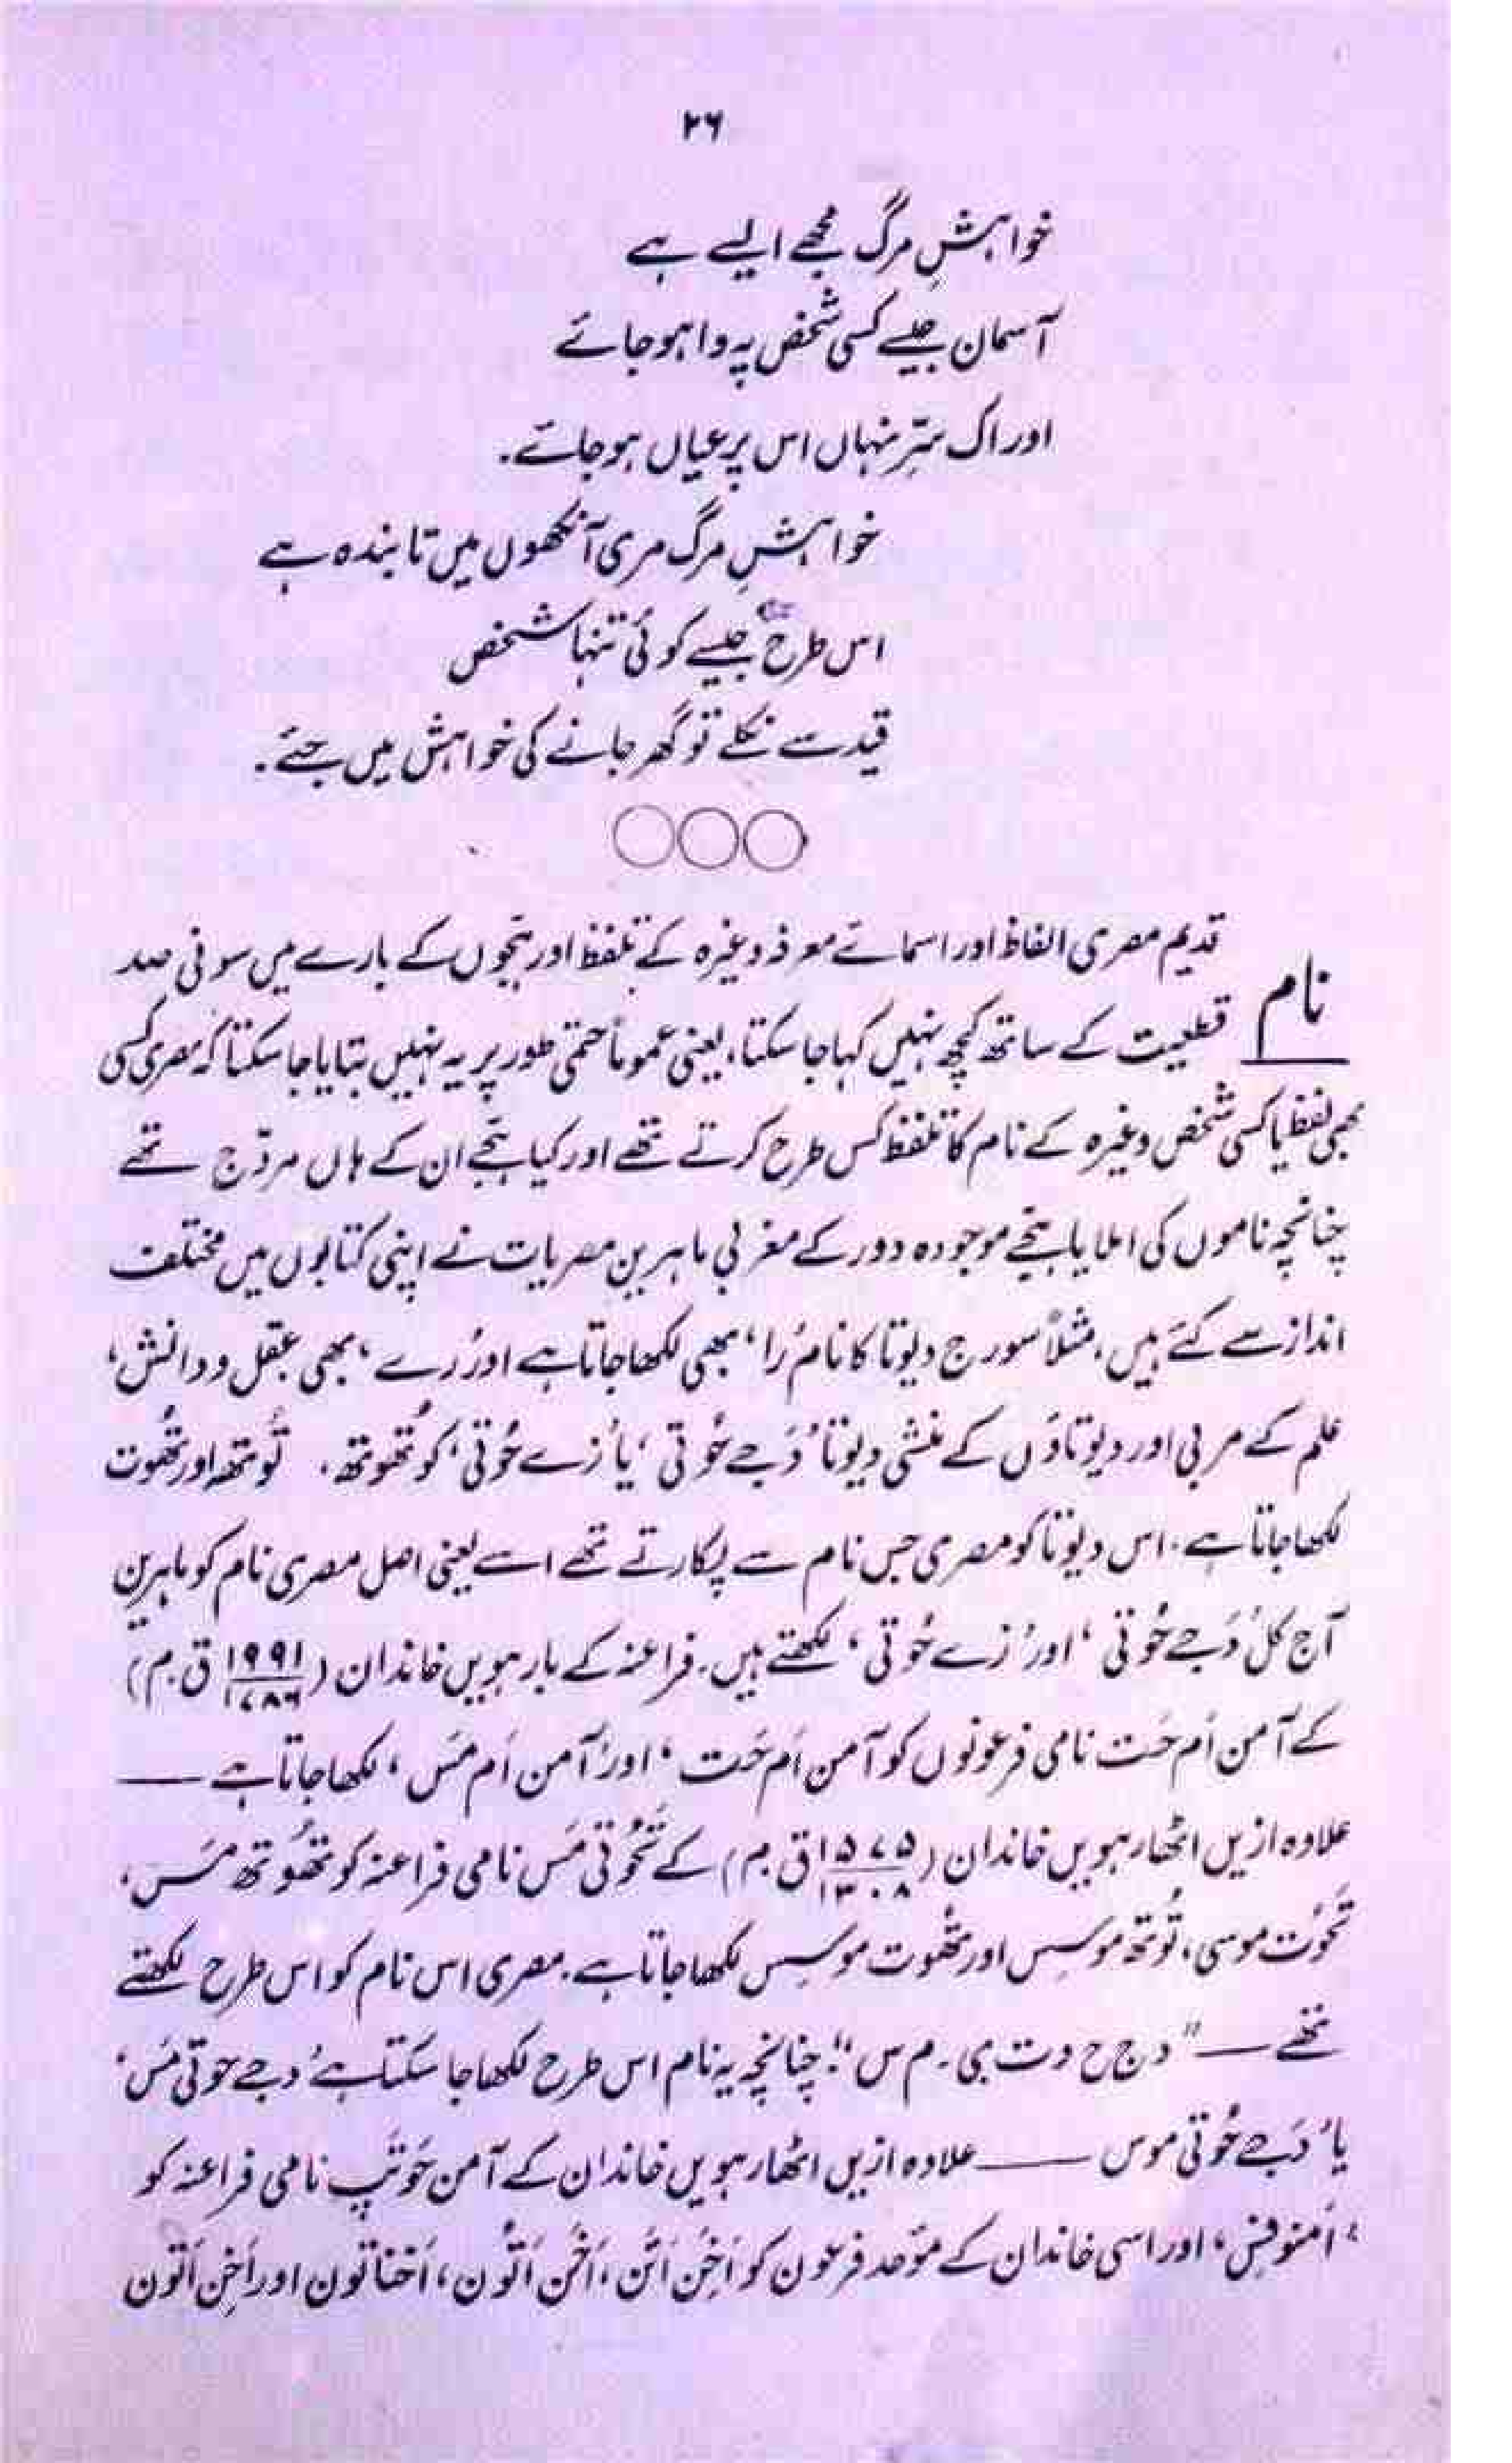 ۲۶
خواہشِ مرگ مجھے ایسے ہے
آسمان جیسے کسی شخص پہ وا ہو جائے
اور اک سِرِّ نہاں اس پر عیاں ہو جائے۔
خواہشِ مرگ مری آنکھوں میں تابندہ ہے
اس طرح جیسے کوئی تنہا شخص
قید سے نکلے تو گھر جانے کی خواہش میں جئے۔
نام
قدیم مصری الفاظ اور اسمائے معرفہ وغیرہ کے تلفظ اور ہجّوں کے بارے میں سو فی صد
قطعیت کے ساتھ کچھ نہیں کہا جا سکتا، یعنی عموماً حتمی طور پر یہ نہیں بتایا جا سکتا کہ مصری کسی
بھی لفظ یا کسی شخص وغیرہ کے نام کا تلفظ کس طرح کرتے تھے اور کیا ہجّے ان کے ہاں مروّج تھے
چنانچہ ناموں کی املا یا ہجّے موجودہ دور کے مغربی ماہرینِ مصریات نے اپنی کتابوں میں مختلف
انداز سے کئے ہیں، مثلاً سورج دیوتا کا نام ’را‘ بھی لکھا جاتا ہے اور ’رے‘ بھی عقل و دانش،
علم کے مربی اور دیوتاؤں کے منشی دیوتا ’دَجے حُوتی‘ یا ’زے حُوتی‘ کو تھوتھ، تُوتھ اور تھُوت
لکھا جاتا ہے۔ اس دیوتا کو مصری جس نام سے پکارتے تھے اسے یعنی اصل مصری نام کو ماہرین
آج کل ’دَجے حُوتی‘ اور ’زے حُوتی‘ لکھتے ہیں۔ فراعنہ کے بارہویں خاندان (۱۹۹۱/۱۷۸۶ ق۔م)
کے آمن اَم حَت نامی فرعونوں کو آمن اَم حَت‘ اور ’آمن اَم مَس‘ لکھا جاتا ہے ——
علاوہ ازیں اٹھارہویں خاندان (۱۵۷۵/۱۳۰۸ ق۔م) کے تَحُوتی مَس نامی فراعنہ کو تھُوتھ مَس،
تَحُوت موسی، تُوتھ موسِس اور تھُوت موسِس لکھا جاتا ہے۔ مصری اس نام کو اس طرح لکھتے
تھے —— "د ج ح و ت ی ۔ م س"۔ چنانچہ یہ نام اس طرح لکھا جا سکتا ہے ’دجے حوتی مَس‘
یا ’دَجے حُوتی موس —— علاوہ ازیں اٹھارہویں خاندان کے آمن حَوتَپ نامی فراعنہ کو
’اَمنوفِس‘ اور اسی خاندان کے مؤحد فرعون کو اَخِن اَتَن، اَخُن اَتُون، اَخناتون اور اَخِن اَتون